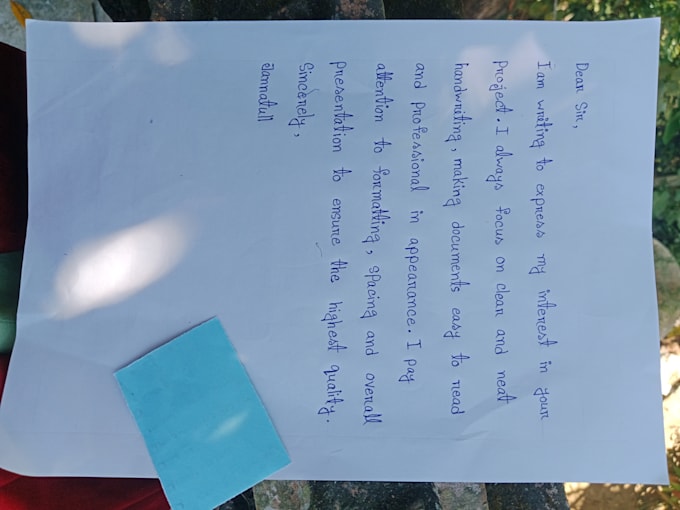 Dear Sir,
I am writing to express my interest in your
Project. I always focus on clear and neat
handwriting, making documents easy to read
and professional in appearance. I pay
attention to formatting, spacing and overall
presentation to ensure the highest quality.
Sincerely,
Jannatull